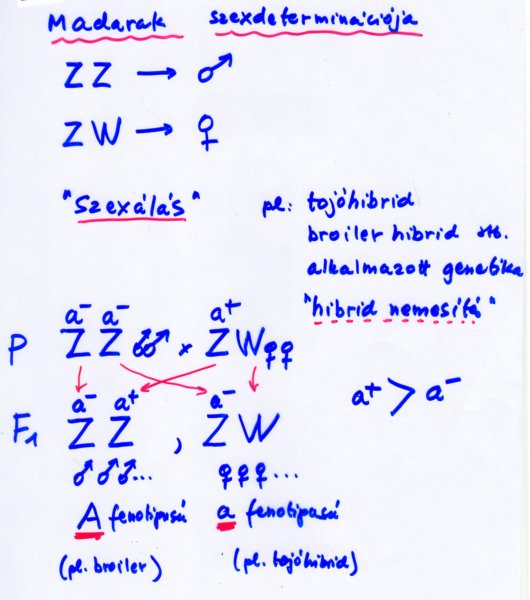 Madarak szexdeterminációja
ZZ → ♂
ZW → ♀
"Szexálás" pl: tojóhibrid
broiler hibrid stb.
alkalmazott genetika
"hibrid nemesítő"
a⁻ a⁻ a⁺
P Z Z ♂♂ × Z W ♀♀
a⁺ > a⁻
a⁻ a⁺ a⁻
F₁ Z Z , Z W
♂ ♂ ♂... ♀ ♀ ♀ ...
A fenotípusú a fenotípusú
(pl. broiler) (pl. tojóhibrid)